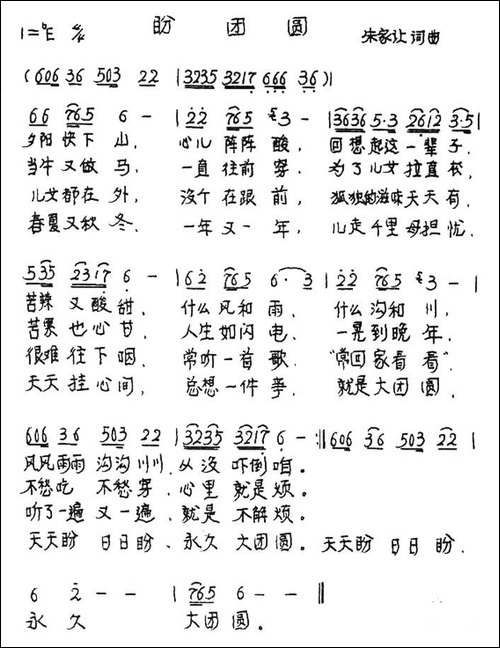 盼 团 圆
1=ᵇE 4/4 朱家让 词曲
( 606 36 503 22 | 3235 3217 666 36 )|
66 765 6 - | 22 765 3 - | 3636 5·3 2612 3·5 |
夕阳 快下 山, 心儿 阵阵 酸, 回想起这一辈子,
当牛 又做 马, 一直 往前 奔, 为了儿女拉直松,
儿女都在 外, 没个 在跟 前, 孤独的滋味天天有,
春夏又秋 冬. 一年 又一 年, 儿走千里母担忧,
535 2317 6 - | 62 765 6·3 | 22 765 3 - |
苦辣 又酸 甜, 什么 风和 雨, 什么 沟和 川,
苦累 也心 甘, 人生 如闪 电, 一晃 到晚 年,
很难 往下 咽, 常听 一首 歌, "常回 家看 看"
天天 挂心 间, 总想 一件 事, 就是 大团 圆,
606 36 503 22 | 3235 3217 6 - :‖ 606 36 503 22 |
风风雨雨 沟沟川川, 从没 吓倒 咱。
不愁吃 不愁穿, 心里 就是 烦。
听了一遍 又一遍, 就是 不解 烦。
天天盼 日日盼、永久 大团 圆。 天天盼 日日盼,
6 2 - - | 765 6 - - ‖
永 久 大团 圆。